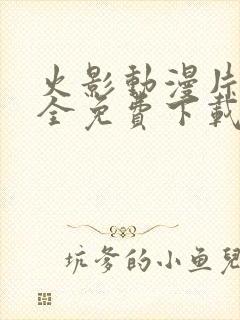 火影動漫片
全免費下載
坑爹的小鱼兒